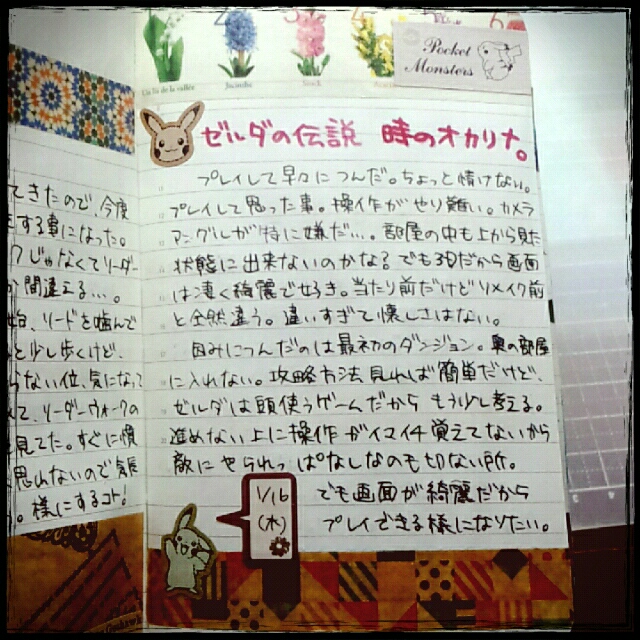 4
5
6
Jacinthe
Pocket
Monsters
ゼルダの伝説 時のオカリナ。
プレイして早々につんだ。ちょっと情けない。
プレイして思った事。操作がやり難い。カメラ
アングルが特に嫌だ…。部屋の中も上から見た
状態に出来ないのかなぁ でも3Dだから画面
は凄く綺麗で好き。当たり前だけどリメイク前
と全然違う。違いすぎて懐しさはない。
因みにつんだのは最初のダンジョン。奥の部屋
に入れない。攻略方法見れば簡単だけど、
ゼルダは頭使うゲームだから もう少し考える。
進めない上に操作がイマイチ覚えてないから
敵にやられっぱなしなのも切ない所。
でも画面が綺麗だから
プレイできる様になりたい。
1/16
(木)
てきたので、今度
する事になった。
じゃなくてリーダー
間違える…。
、リードを噛んで
と少し歩くけど、
らない位、気になって
て、リーダーウォークの
見てた。すぐに慣
思わないので気長
。様にするコト!